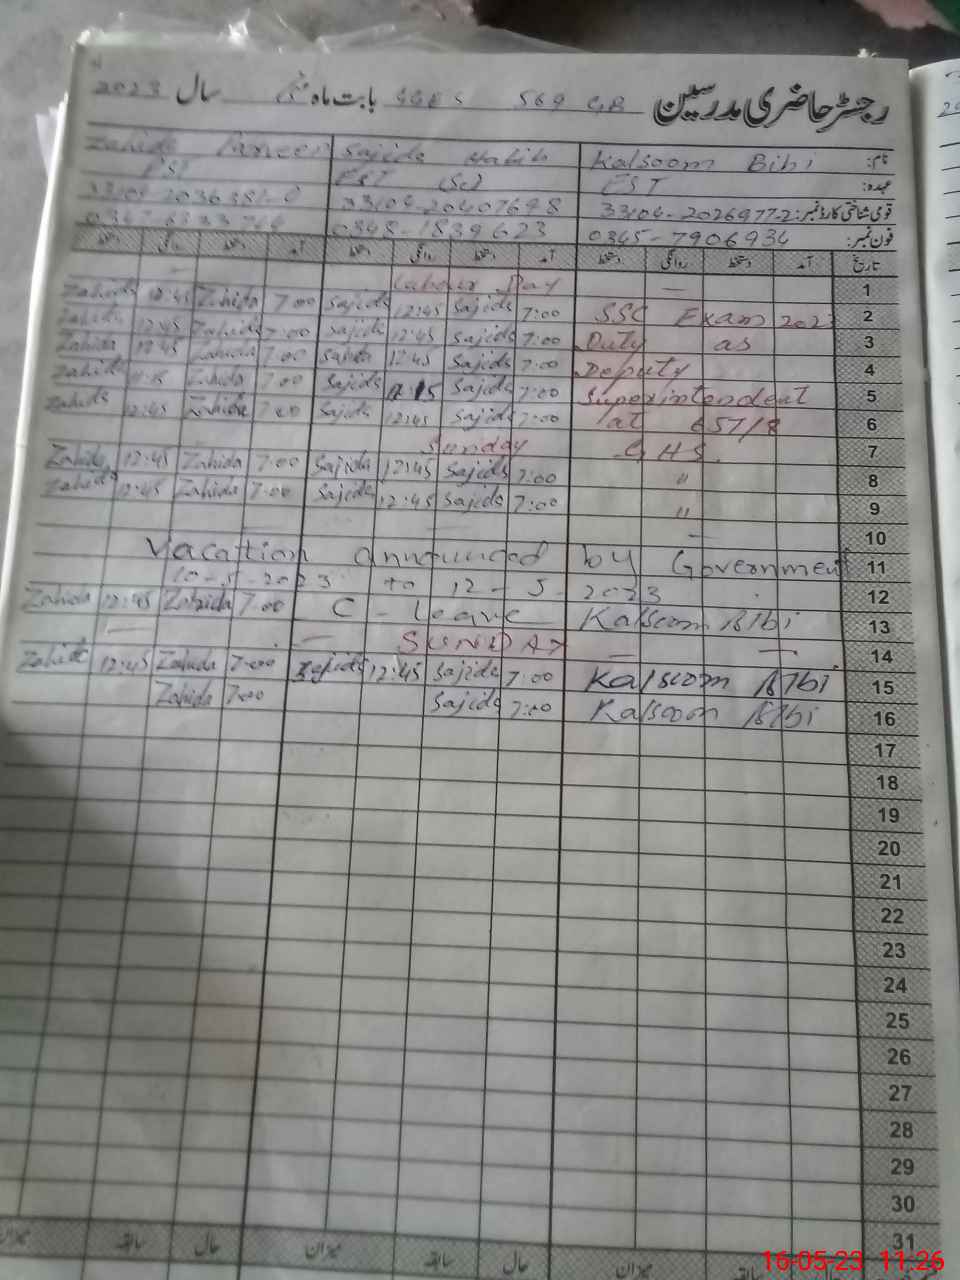 رجسٹر حاضری مدرسین GGES 569 GB بابت ماہ مئی سال 2023
نام: Kalsoom Bibi Sajida Habib Zahida Parveen
عہدہ: EST EST (Sc) PST
قومی شناختی کارڈ نمبر: 33104-2026977-2
فون نمبر: 0345-7906934 0348-1839623
تاریخ آمد دستخط روانگی دستخط آمد دستخط روانگی دستخط آمد دستخط روانگی دستخط
1 Labour Day
2 SSC Exam 2023 7:00 Sajida 12:45 Sajida 7:00 Zahida 12:45 Zahida
3 Duty as 7:00 Sajida 12:45 Sajida 7:00 Zahida 12:45 Zahida
4 Deputy 7:00 Sajida 12:45 Sajida 7:00 Zahida 12:45 Zahida
5 Superintendent 7:00 Sajida Sajida 7:00 Zahida Zahida
6 at 657/8 7:00 Sajida 12:45 Sajida 7:00 Zahida 12:45 Zahida
7 GHS. Sunday
8 " 7:00 Sajida 12:45 Sajida 7:00 Zahida 12:45 Zahida
9 " 7:00 Sajida 12:45 Sajida 7:00 Zahida 12:45 Zahida
10
11 Vacation announced by Government
12 10-5-2023 to 12-5-2023
13 Kalsoom Bibi C-leave 7:00 Zahida 12:45 Zahida
14 SUNDAY
15 Kalsoom Bibi 7:00 Sajida 12:45 Sajida 7:00 Zahida 12:45 Zahida
16 Kalsoom Bibi 7:00 Sajida 7:00 Zahida
17
18
19
20
21
22
23
24
25
26
27
28
29
30
31
میزان حال سابقہ میزان حال سابقہ میزان
16-05-23 11:26